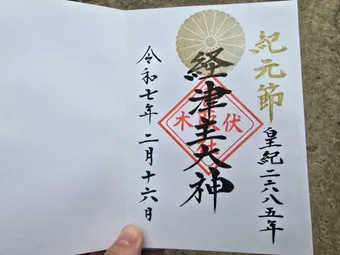 紀元節
皇紀二六八五年
経津主大神
木
伏
令和七年二月十六日